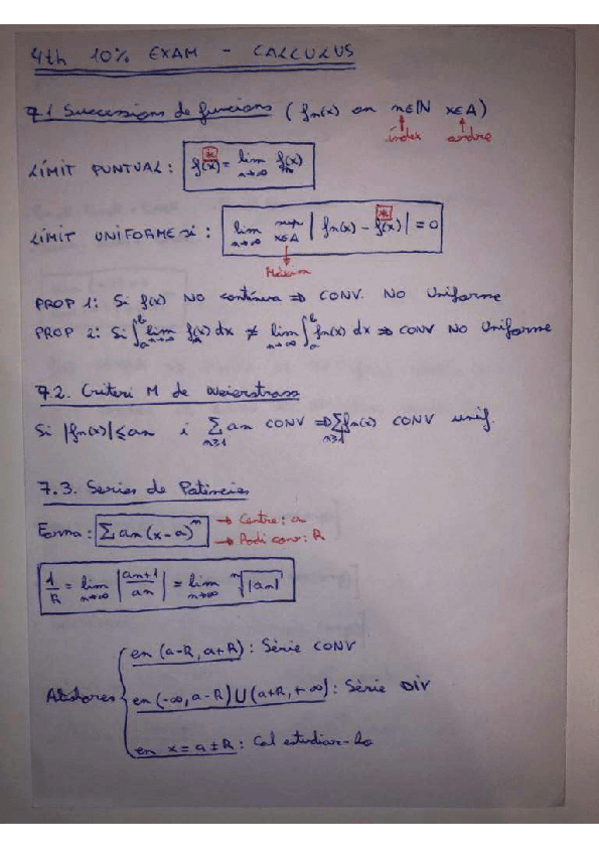 4th 10% EXAM - CALCULUS
7.1 Successions de funcions (fn(x) on n∈ℕ x∈A)
índex
LÍMIT PUNTUAL: f(x) = lim n→∞ fn(x)
*
LÍMIT UNIFORME si: lim n→∞ sup x∈A |fn(x) - f(x)| = 0
*
Màxim
PROP 1: Si f(x) NO contínua ⇒ CONV. NO Uniforme
PROP 2: Si ∫ₐᵇ lim n→∞ fn(x) dx ≠ lim n→∞ ∫ₐᵇ fn(x) dx ⇒ CONV NO Uniforme
7.2. Criteri M de Weierstrass
Si |fn(x)| ≤ an i Σ n≥1 an CONV ⇒ Σ n≥1 fn(x) CONV unif.
7.3. Sèries de Potències
Forma: Σ an (x-a)ⁿ → Centre: a
→ Radi conv: R
1/R = lim n→∞ |an+1/an| = lim n→∞ ⁿ√|an|
en (a-R, a+R): Sèrie CONV
en (-∞, a-R) U (a+R, +∞): Sèrie DIV
en x = a ± R: Cal estudiar-ho